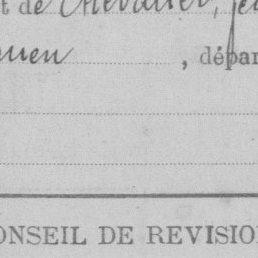 t de Chevalier, je
ouen, dépar
ONSEIL DE REVISIO